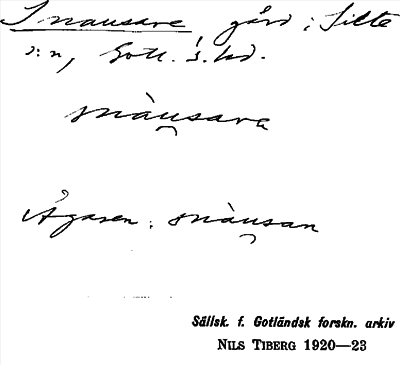 Snausare, gård i Silte
s:n, Gotl. s. hd.
snàu̯sarɐ
Ägaren: snàu̯san
Sällsk. f. Gotländsk forskn. arkiv
NILS TIBERG 1920—23